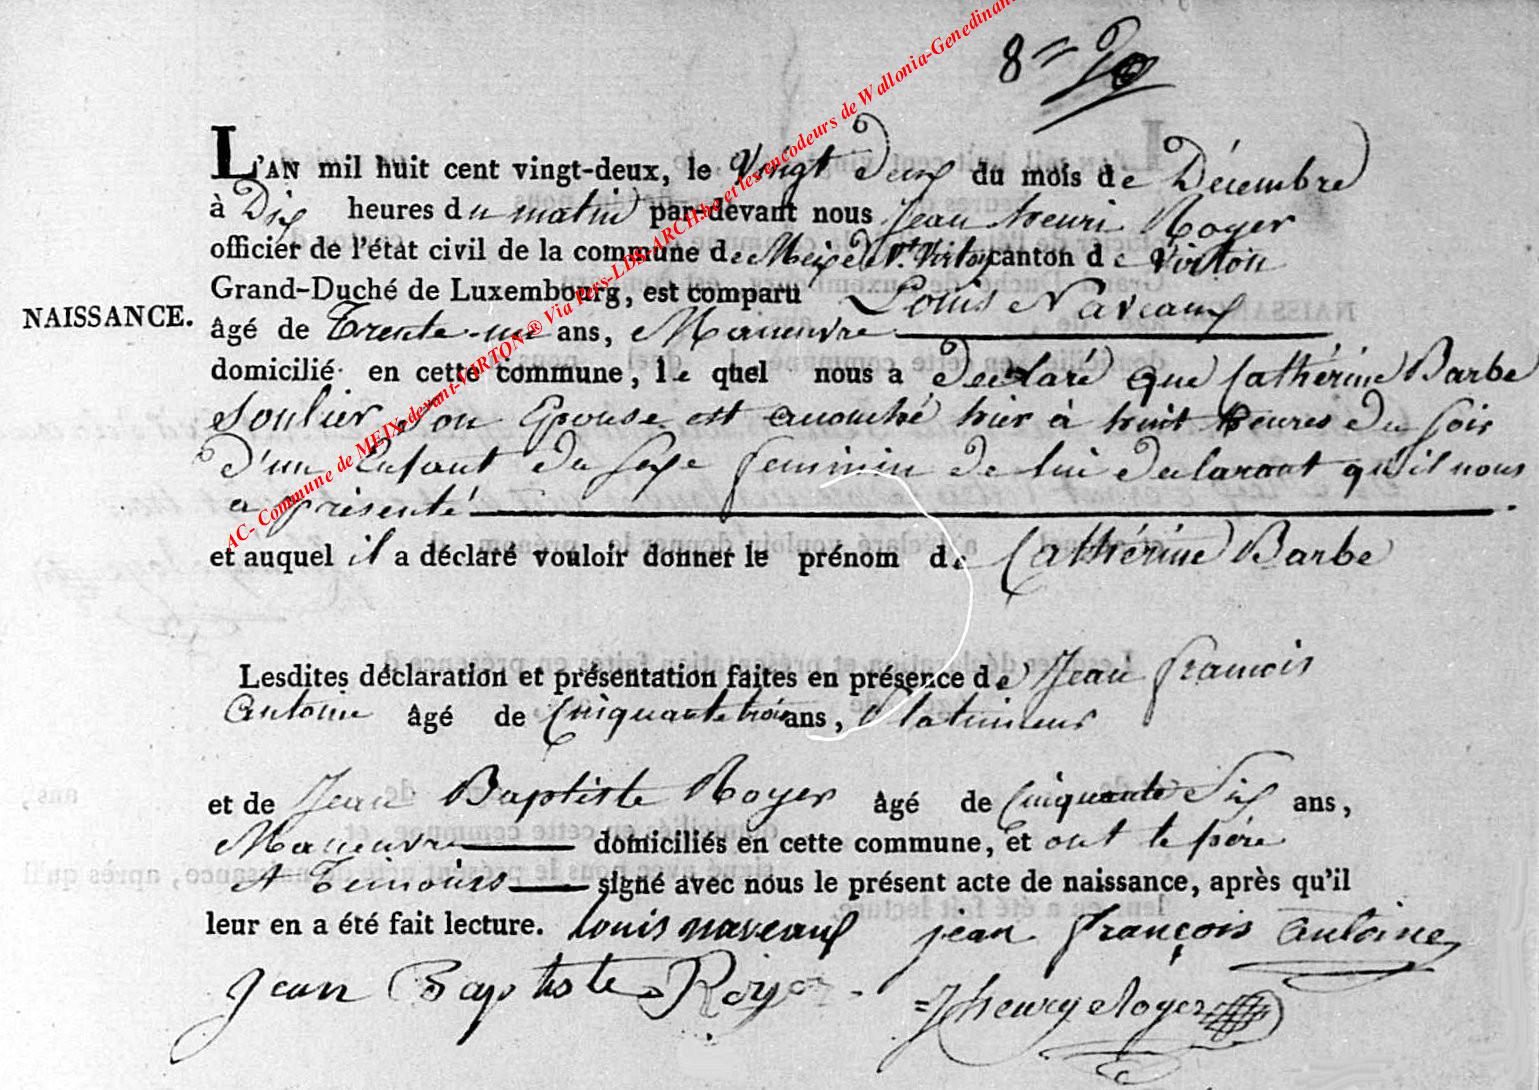 8
L'AN mil huit cent vingt-deux, le Vingt Deux du mois de Décembre
à Dix heures du matin par-devant nous Jean henri Royer
officier de l'état civil de la commune de Meix dvt. Virton canton de Virton
Grand-Duché de Luxembourg, est comparu Louis Naveaux
NAISSANCE.
âgé de Trente-un ans, Maneuvre
domicilié en cette commune, le quel nous a declaré que Cathérine Barbe
Soulier son Epouse est acouché hier à huit heures du soir
d'un Enfant du sexe feminin de lui declarant qu'il nous
a présenté
et auquel il a déclaré vouloir donner le prénom de Cathérine Barbe
Lesdites déclaration et présentation faites en présence de Jean francois
Antoine âgé de Cinquante trois ans, Platineur
et de Jean Baptiste Royer âgé de Cinquante Six ans,
Maneuvre domiciliés en cette commune, et ont le pére
et Temoins signé avec nous le présent acte de naissance, après qu'il
leur en a été fait lecture. louis naveaux jean françois antoine
Jean Baptiste Royer J henry Royer
AC- Commune de MEIX-devant-VIRTON ® Via Pers-LDS-ARCH.be et les encodeurs de Wallonia-Genedinant